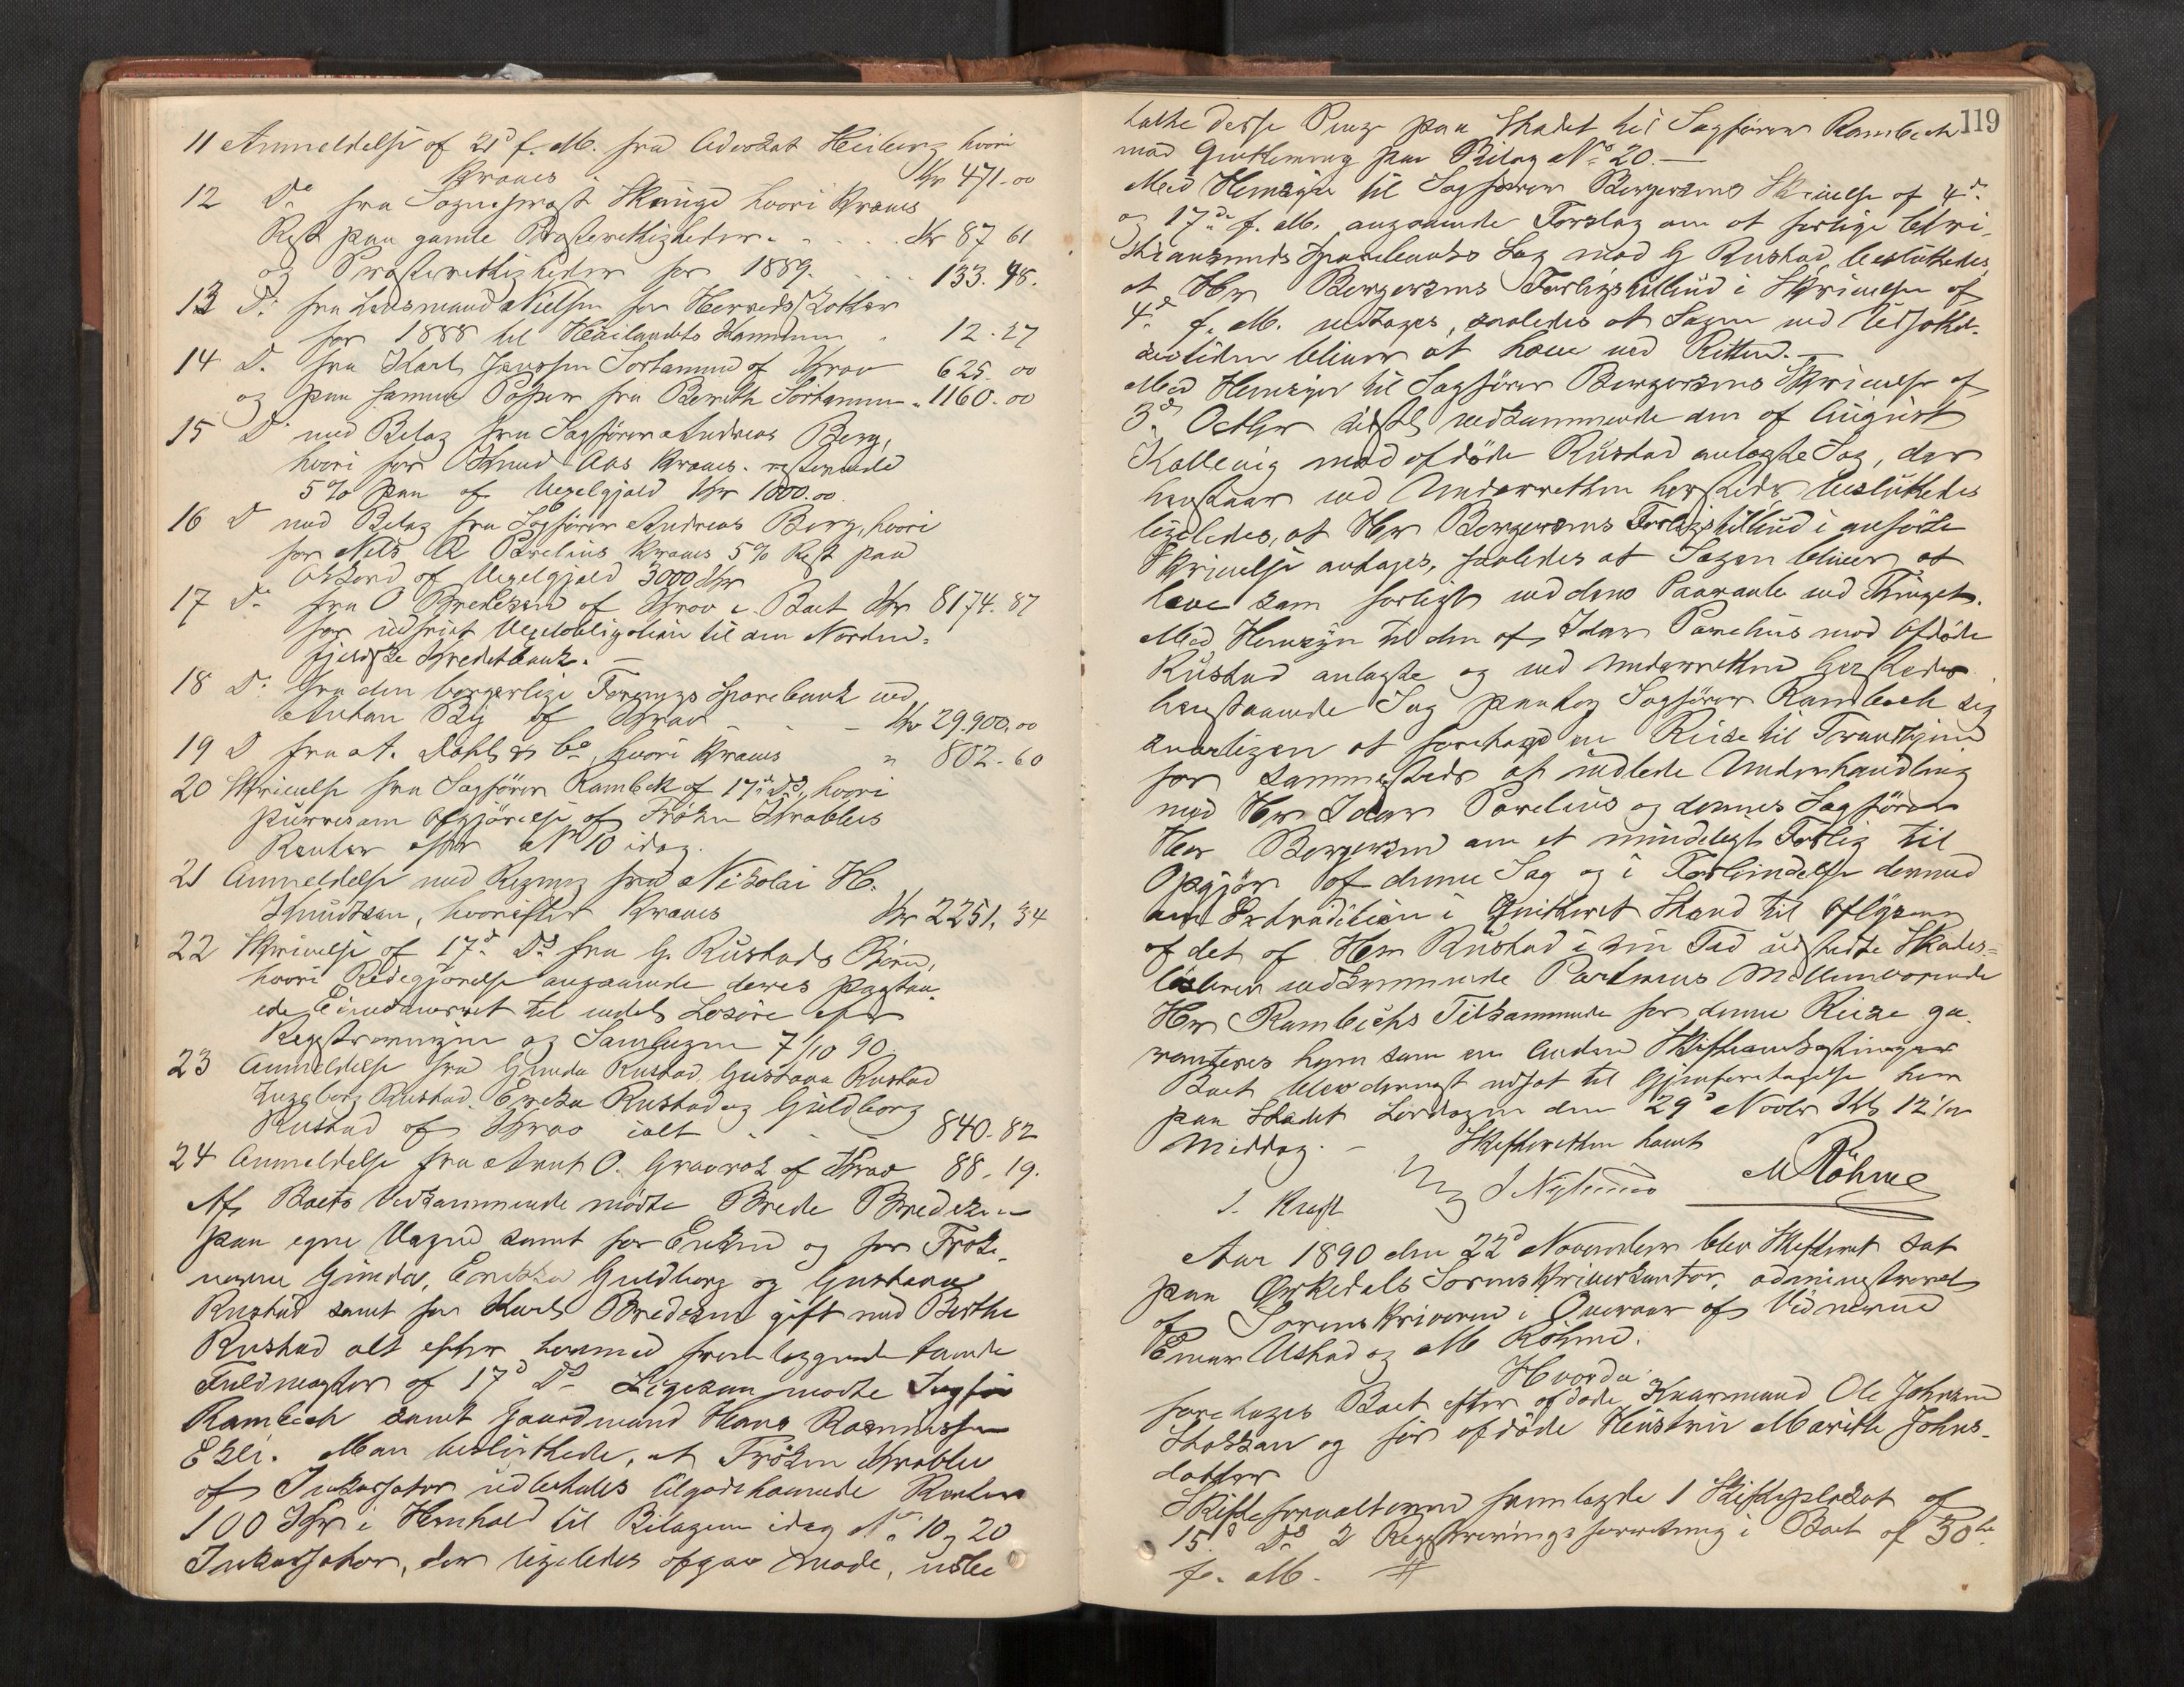 11 Anmeldelse af 21d f. M. fra Advokat Heiberg hvori
Kraves Kr 471-00
12 Do fra Sogneprest Skange hvori Kraves
Rest paa gamle Presterettigheder. Kr 87 61
og Presterettigheder for 1889. 133.48.
13 Do fra Lensmand Nielsen for Herredsskatter
for 1888 til Kommune 12-27
14 D. fra Karl Janssen Sorhammer af Krav 625.00
og paa samme Papir fra Berith Sorhammer 1160.00
15 D med Belæg fra Sagfører Andreas Berg,
hvori for Knud Aas Kraves resterende
5% paa af Vexelgjæld Kr 1000.00
16 D med Belæg fra Sagfører Andreas Berg, hvori
for Nils R Parelius Kraves 5% Rest paa
Akkord af Vexelgjæld 3000 Kr
17 Do fra O Bredesen af Krav i Boet Kr 8174.87
for indfriet Vexelobligation til den Norden-
fjeldske Kreditbank. —
18 D: fra den borgerlige Forenings Sparebank ved
Anton By af Krav Kr 29.900,00
19 D fra A. Dahl & Co hvori Kraves " 802-60
20 Skrivelse fra Sagfører Rambech af 17de Ds, hvori
purres om Afgjørelse af Frøken Krabbes
Renter efter No 10 idag.
21 Anmeldelse med Regning fra Nikolai H.
Knudtzon, hvorefter Kraves Kr 2251,34
22 Skrivelse af 17d Ds fra G. Rustads Børn,
hvori Redegjørelse angaaende deres paastaa-
ede Eiendomsret til endel Løsøre efter
Registreringen og Samlingen 7/10 90
23 Anmeldelse fra Gunda Rustad Gustava Rustad
Ingeborg Rustad Erikka Rustad og Guldborg
Rustad af Krav ialt 840.82
24 Anmeldelse fra Arnt O. Gravrok af Krav 88.19.
Af Boets Vedkommende mødte Brede Bredesen
paa egne Vegne samt for Enken og for Frøke-
nerne Gunda, Erikka Guldborg og Gustava
Rustad samt for Karl Bredesen gift med Berthe
Rustad alt efter hermed fremlæggende tvende
Fuldmagter af 17d Ds Ligesom mødte Sagfør
Rambech samt Gaardmand Hans Rasmussen
Ekli. Man besluttede, at Frøken Krabbe
af Inkassator udbetales tilgodehavende Renter
100 Kr i Henhold til Bilagene idag No 10 og 20
Inkassator, der ligeledes afgav Møde, udbe
119
talte disse Penge paa Stedet til Sagfører Rambech
mod Qvittering paa Bilag No 20. —
Med Hensyn til Sagfører Bergersens Skrivelse af 4d
og 17de f. M. angaaende Forslag om at forlige den i
Kristiansunds Sparebanks Sag mod G Rustad, besluttedes
at Hr Bergersens Forligstilbud i Skrivelse af
4d f. M. vedtages, saaledes at Sagen ved
bliver at hæve ved Retten. —
Med Hensyn til Sagfører Bergersens Skrivelse af
3d Octbr sidstl vedkommende den af August
Kallevig mod afdøde Rustad anlagte Sag, der
henstaar ved Underretten hersteds besluttedes
ligeledes, at Hr Bergersens Forligstilbud i anførte
Skrivelse antages, saaledes at Sagen bliver at
hæve som forligt ved dens Paaraab ved Thinget.
Med Hensyn til den af Idar Parelius mod Afdøde
Rustad anlagte og ved Underretten hersteds
henstaaende Sag paatog Sagfører Rambech sig
snarligen at foretage en Reise til Trondhjem
for sammesteds at indlede Underhandling
med Hr Idar Parelius og dennes Sagfører
Herr Bergersen om et mindeligt Forlig til
Opgjør af denne Sag og i Forbindelse dermed
om Extradition i Qvitteret Stand til Aflysning
af det af Herr Rustad i sin Tid udstedte Skades-
løsbrev vedkommende Parternes Mellemværende
Hr Rambechs Tilkommende for denne Reise ga-
ranteres ham som en anden Skifteomkostning
Boet blev dernæst udsat til Gjenforetagelse her
paa Stedet Lørdagen den 29d Novbr Kl 12 for
Middag. — Skifteretten hævet
J. Kraft J Nyhuus M Röhme
Aar 1890 den 22d November blev Skifteret sat
paa Ørkedals Sorenskriverkontor, administreret
af Sorenskriveren i Overvær af Vidnerne
Einar Ustad og M Röhme.
Hvorda
foretages Boet efter afdøde Kaarmand Ole Johnsen
og før afdøde Hustru Marithe Johns-
datter
Skifteforvalteren fremlagde 1 Skifteplakat af
15d Ds 2 Registreringsforretning i Boet af 30te
f. M. #